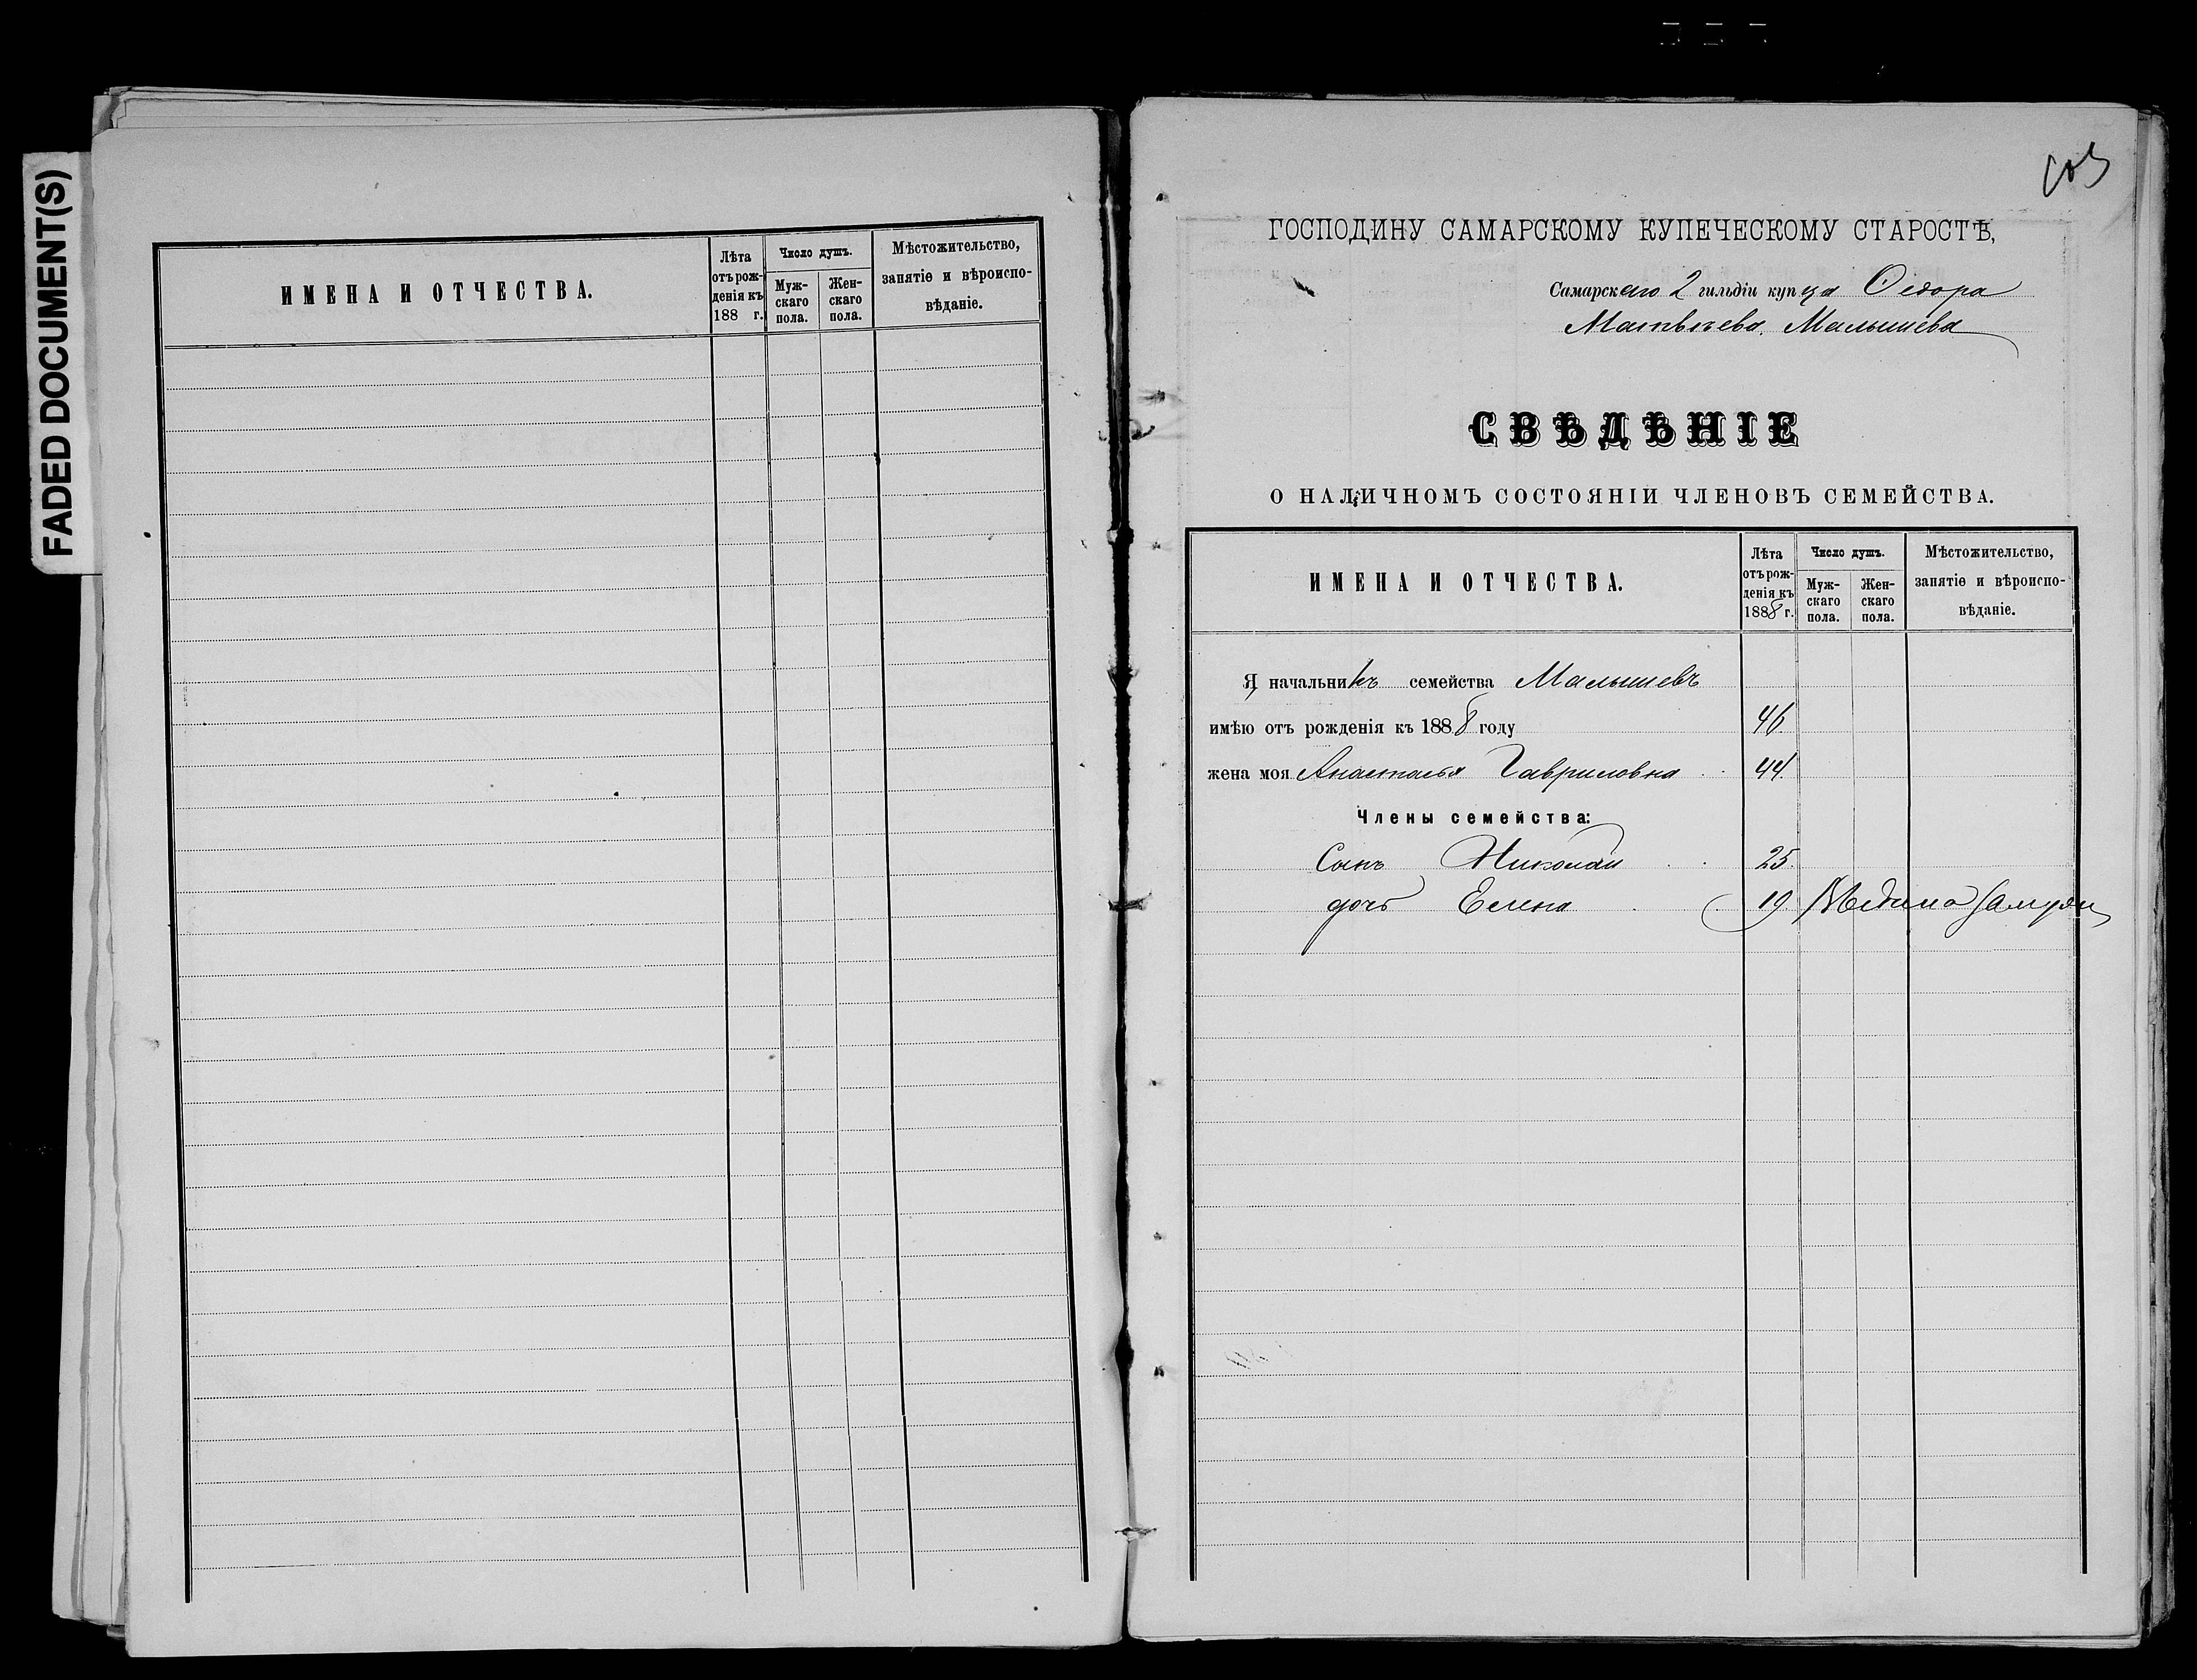 FADED DOCUMENT(S)
ИМЕНА И ОТЧЕСТВА.
Лѣта
отъ рож-
денія къ
188 г.
Число душъ.
Муж-
скаго
пола.
Жен-
скаго
пола.
Мѣстожительство,
занятіе и вѣроиспо-
вѣданіе.
103
ГОСПОДИНУ САМАРСКОМУ КУПЕЧЕСКОМУ СТАРОСТѢ,
Самарскаго 2 гильдіи купца Ѳедора
Матвѣева Малышева
СВѢДѢНІЕ
О НАЛИЧНОМЪ СОСТОЯНІИ ЧЛЕНОВЪ СЕМЕЙСТВА.
ИМЕНА И ОТЧЕСТВА.
Лѣта
отъ рож-
денія къ
1888 г.
Число душъ.
Муж-
скаго
пола.
Жен-
скаго
пола.
Мѣстожительство,
занятіе и вѣроиспо-
вѣданіе.
Я начальникъ семейства Малышевъ
имѣю отъ рожденія къ 1888 году 46.
жена моя Анастасья Гавриловна 44.
Члены семейства:
Сынъ Николай 25.
дочь Елена 19.